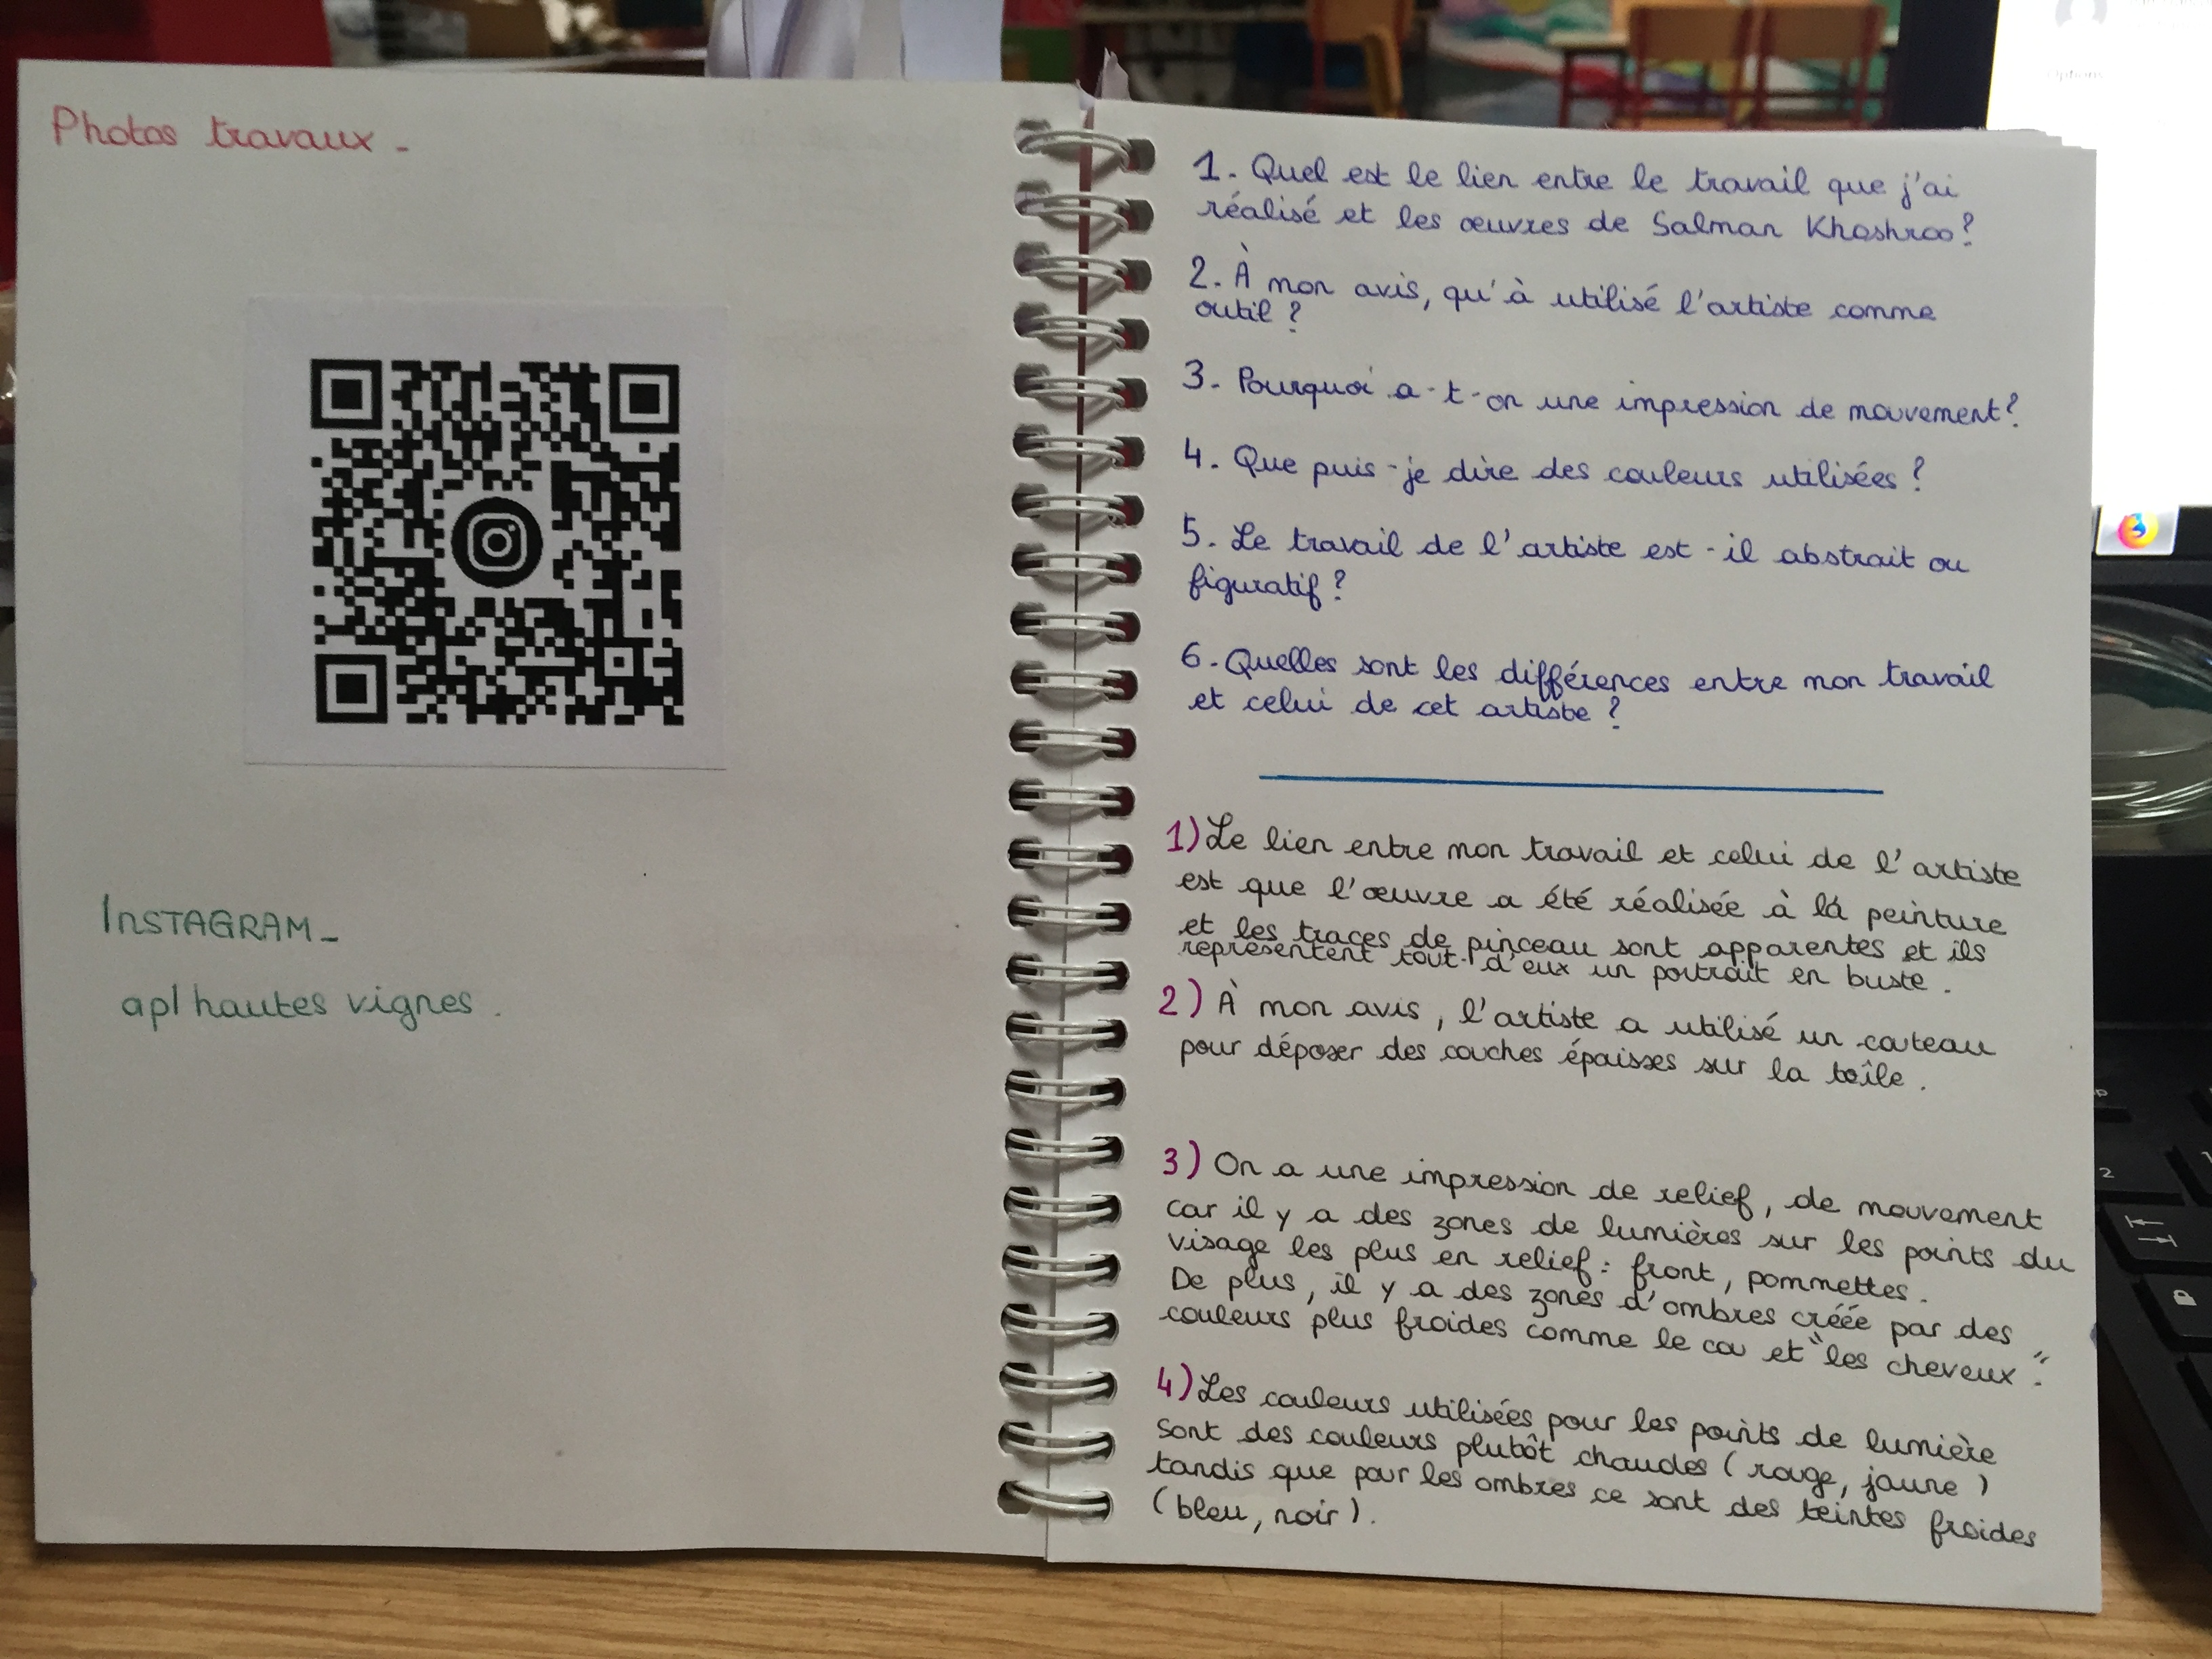 Photos travaux -
INSTAGRAM -
apl hautes vignes.
1. Quel est le lien entre le travail que j'ai
réalisé et les œuvres de Salman Khoshroo?
2. À mon avis, qu'à utilisé l'artiste comme
outil ?
3. Pourquoi a-t-on une impression de mouvement?
4. Que puis-je dire des couleurs utilisées ?
5. Le travail de l'artiste est-il abstrait ou
figuratif ?
6. Quelles sont les différences entre mon travail
et celui de cet artiste ?
1) Le lien entre mon travail et celui de l'artiste
est que l'œuvre a été réalisée à la peinture
et les traces de pinceau sont apparentes et ils
représentent tout d'eux un portrait en buste.
2) À mon avis, l'artiste a utilisé un couteau
pour déposer des couches épaisses sur la toile.
3) On a une impression de relief, de mouvement
car il y a des zones de lumières sur les points du
visage les plus en relief : front, pommettes.
De plus, il y a des zones d'ombres créée par des
couleurs plus froides comme le cou et "les cheveux".
4) Les couleurs utilisées pour les points de lumière
sont des couleurs plutôt chaudes (rouge, jaune)
tandis que pour les ombres ce sont des teintes froides
(bleu, noir).
Options
2